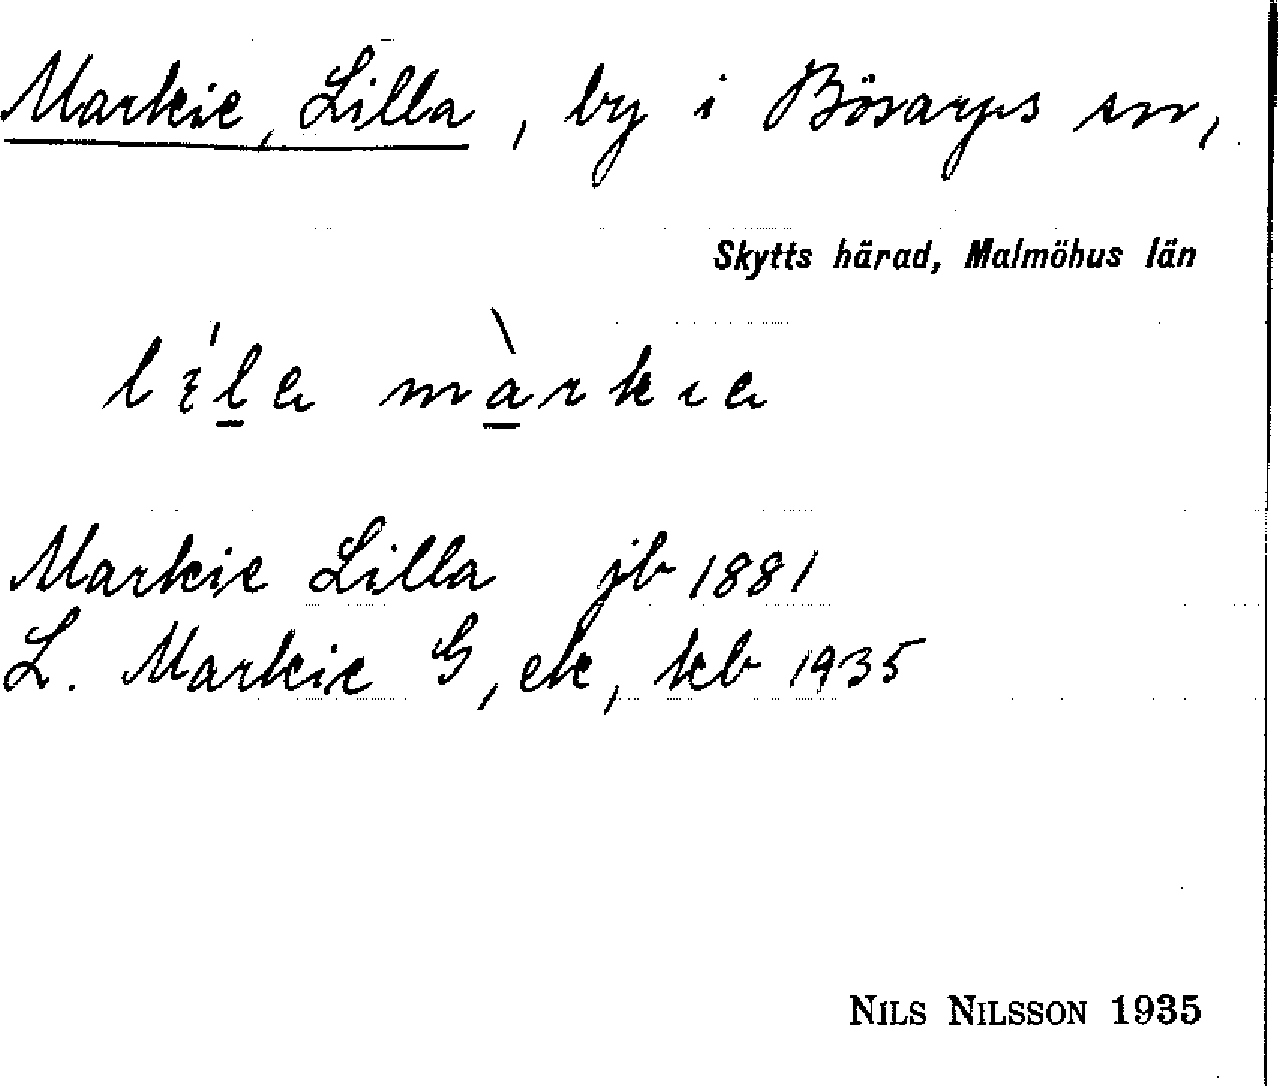 Markie, Lilla, by i Bösarps sn,
Skytts härad, Malmöhus län
Markie Lilla jb 1881
L. Markie G, ek, kb 1935
NILS NILSSON 1935